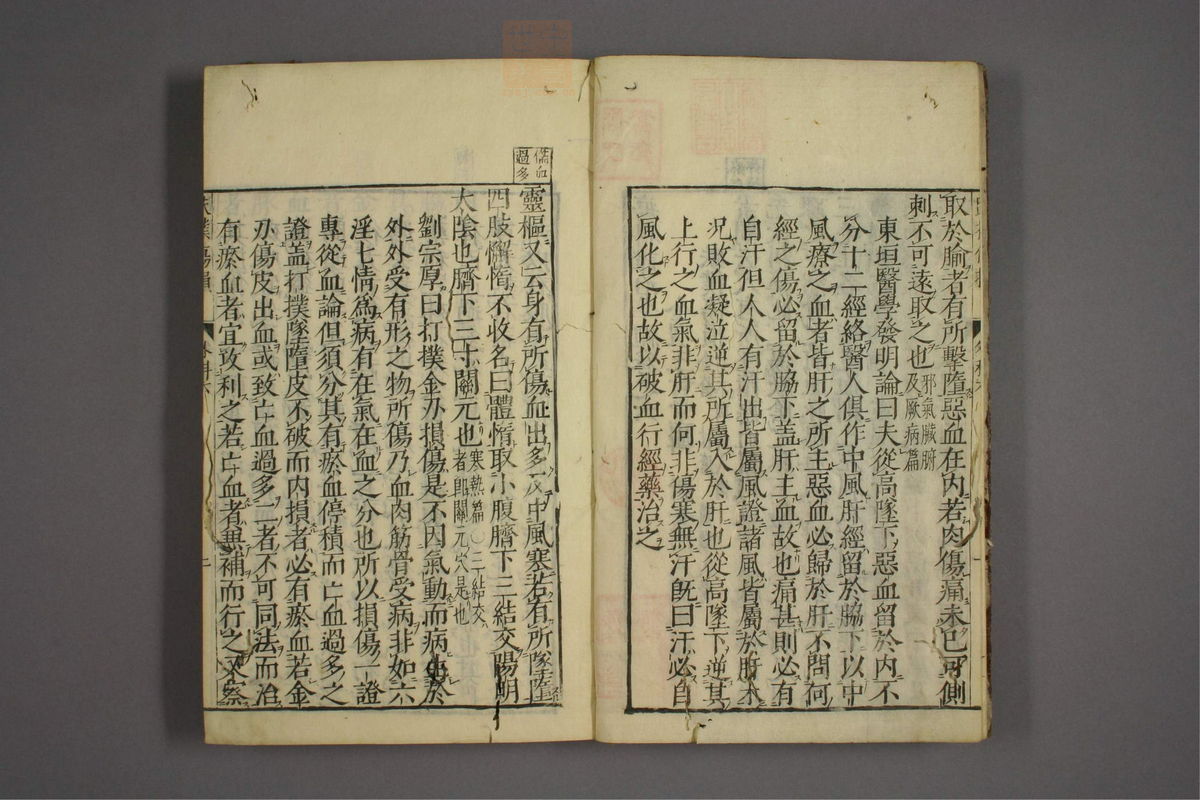 取於腧者有所擊墮惡血在內若肉傷痛未已可側
刺不可遠取之也邪氣臟腑及厥病篇
東垣醫學發明論曰夫從高墜下惡血留於內不
分十二經絡醫人俱作中風肝經留於脇下以中
風療之血者皆肝之所主惡血必歸於肝不問何
經之傷必留於脇下盖肝主血故也痛甚則必有
自汗但人人有汗出皆屬風證諸風皆屬於肝木
况敗血凝泣逆其所屬入於肝也從高墜下逆其
上行之血氣非肝而何非傷寒無汗旣曰汗必自
風化之也故以破血行經藥治之
傷血過多
靈樞又云身有所傷血出多及中風寒若有所墮墜
四肢懈惰不收名曰體惰取小腹臍下三結交陽明
太陰也臍下三寸關元也寒熱篇○三結交者即關元穴是也
劉宗厚曰打撲金刅損傷是不因氣動而病生於
外外受有形之物所傷乃血肉筋骨受病非如六
淫七情爲病有在氣在血之分也所以損傷一證
專從血論但須分其有瘀血停積而亡血過多之
證盖打撲墜墮皮不破而內損者必有瘀血若金
刅傷皮出血或致亡血過多二者不可同法而治
有瘀血者宜攻利之若亡血者兼補而行之又察